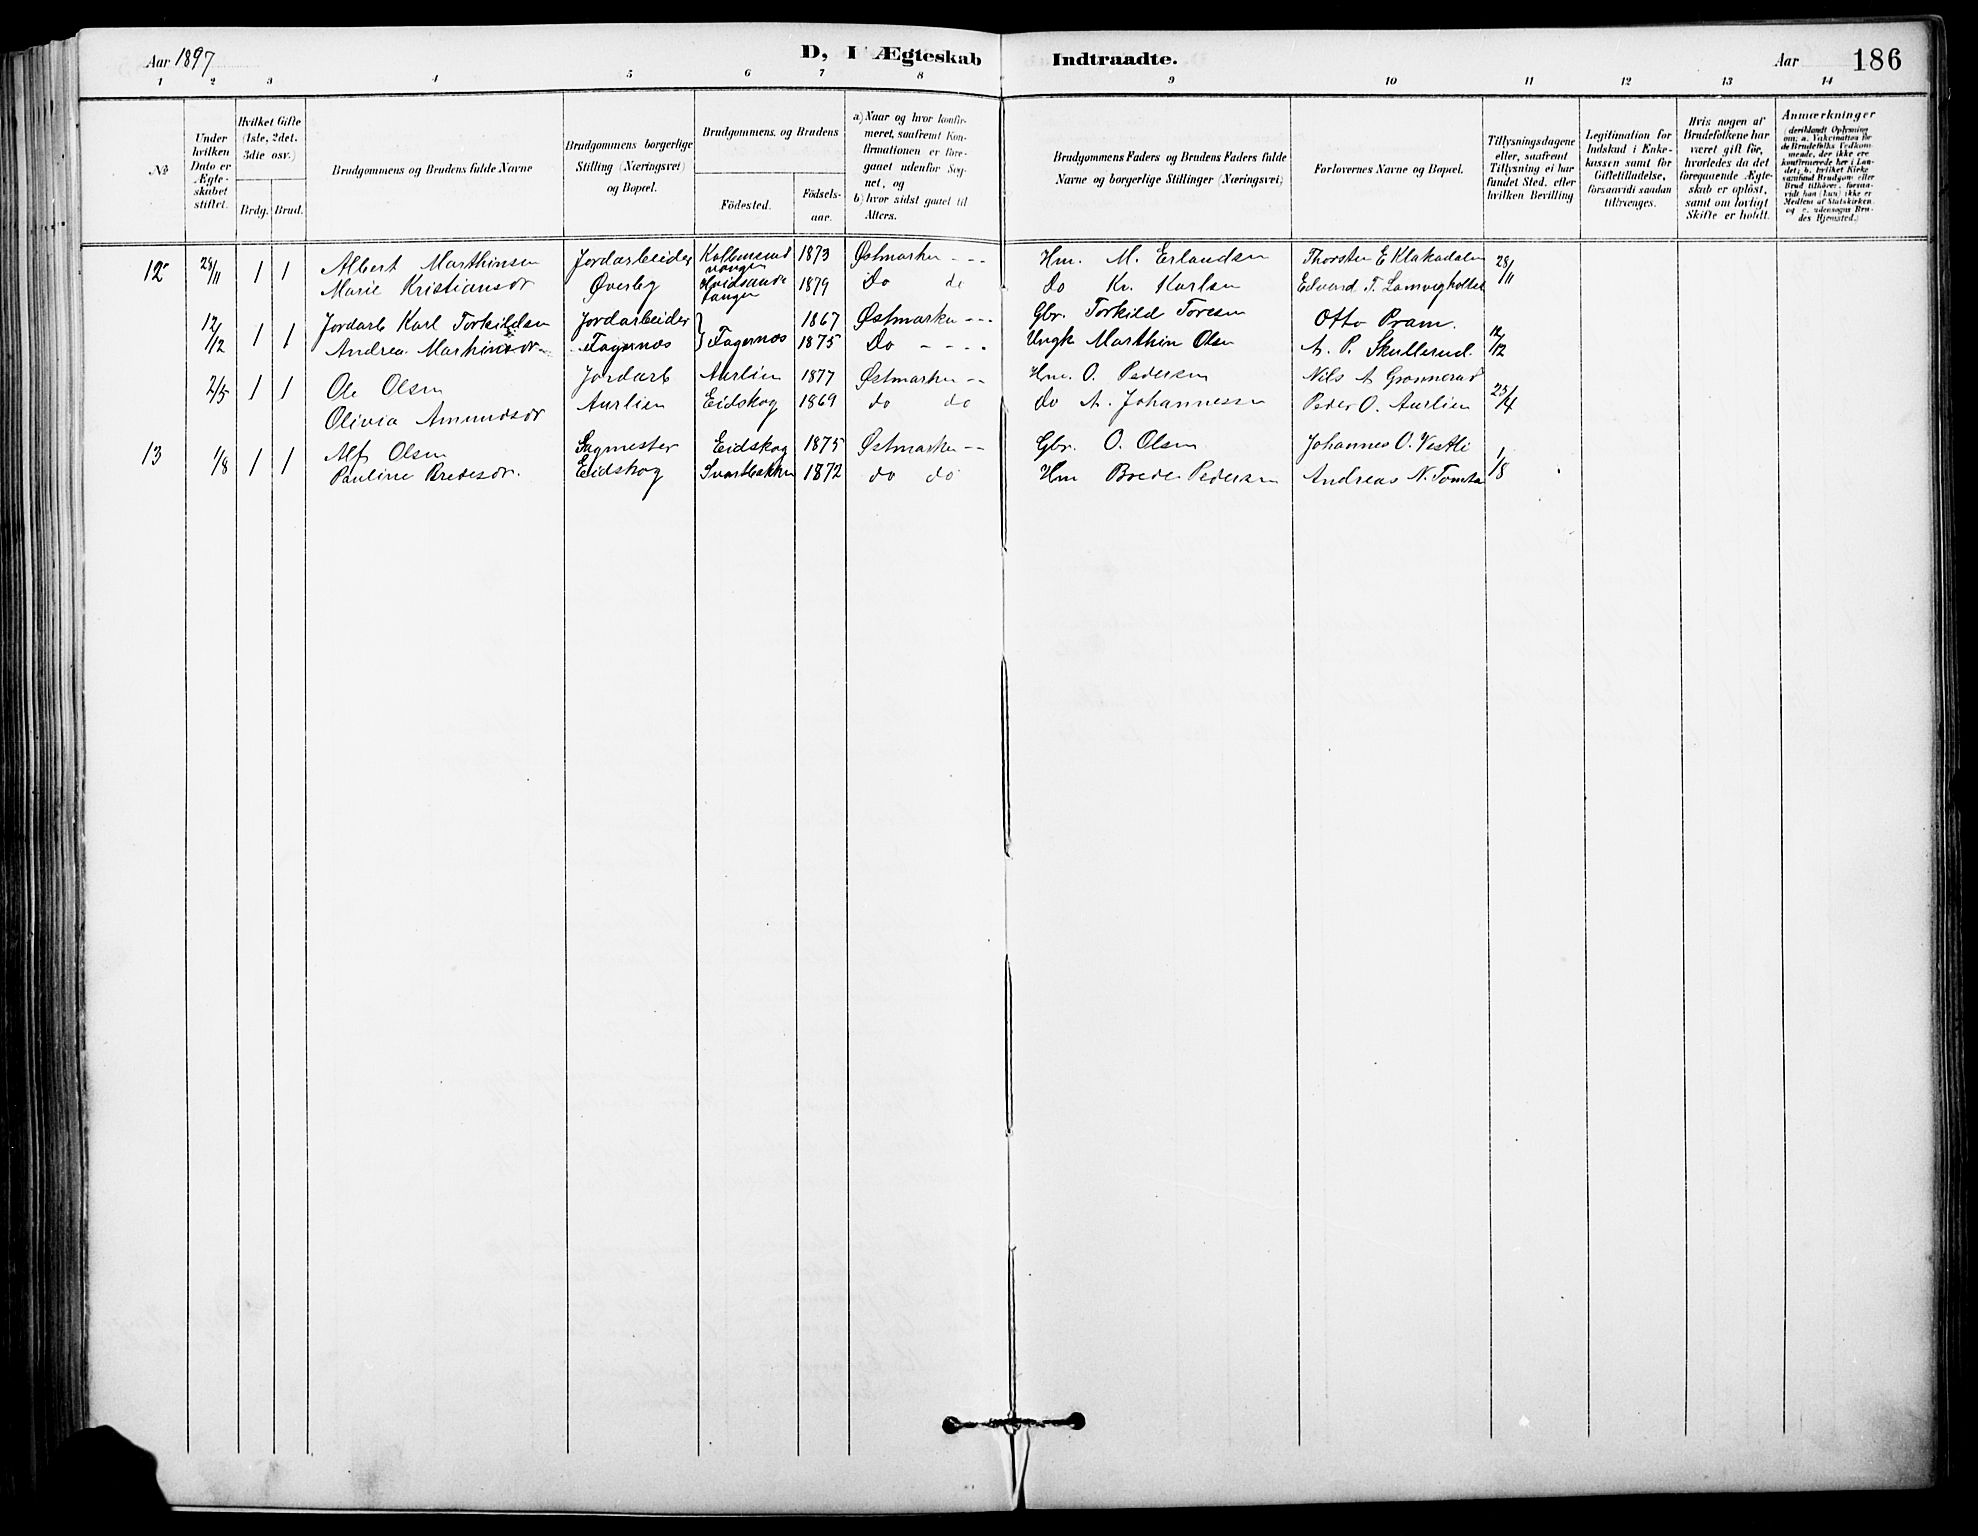 Aar 1897
D, I Ægteskab Indtraadte.
Aar
186
1 2 3 4 5 6 7 8 9 10 11 12 13 14
No
Under hvilken Dato er Ægteskabet stiftet.
Hvilket Gifte (1ste, 2det, 3die osv.)
Brdg. Brud.
Brudgommens og Brudens fulde Navne
Brudgommens borgerlige Stilling (Næringsvei) og Bopæl.
Brudgommens og Brudens
Födested.
Födselsaar.
a) Naar og hvor konfirmeret, saafremt Konfirmationen er foregaaet udenfor Sognet, og
b) hvor sidst gaaet til Alters.
Brudgommens Faders og Brudens Faders fulde Navne og borgerlige Stillinger (Næringsvei)
Forlovernes Navne og Bopæl.
Tillysningsdagene eller, saafremt Tillysning ei har fundet Sted, efter hvilken Bevilling
Legitimation for Indskud i Enkekassen samt for Giftetilladelse, forsaavidt saadan tiltrænges.
Hvis nogen af Brudefolkene har været gift för, hvorledes da det foregaaende Ægteskab er oplöst, samt om lovligt Skifte er holdt.
Anmærkninger
(deriblandt Oplysning om: a. Vakcination for de Brudefolks Vedkommende, der ikke ere konfirmerede her i Landet; b. hvilket Kirkesamfund Brudgom eller Brud tilhörer, forsaavidt han (hun) ikke er Medlem af Statskirken, og c. udensogns Brudes Hjemsted.)
12 28/11 1 1 Albert Marthinsen Jordarbeider 1873 Østmarken - - - Hm. M. Erlandsen Thorsten E Klakadalen 28/11
Marie Kristiansdr Øverby 1879 Do do Do Kr. Karlsen Edvard T.
12/12 1 1 Jordarb Karl Torkildsen Jordarbeider 1867 Østmarken - - - Gbr. Torkild Toresen Otto Pram. 12/12
Andrea Marthinsdr Fagernæs Fagernæs 1875 Do - - - - Ungk Marthin Olsen A. P. Skullerud.
2/5 1 1 Ole Olsen Jordarb Aurlien 1877 Østmarken - - Hm. O. Pedersen Nils A Grønnerud 25/4
Olivia Amundsdr Aurlien Eidskog 1869 do do do A. Johannessen Peder O. Aurlien
13 1/8 1 1 Alf Olsen Sagmester Eidskog 1875 Østmarken - - Gbr. O. Olsen Johannes O. Vestli 1/8
Pauline Bredesdr. Eidskog Svartbækken 1872 do do Hm Brede Pedersen Andreas N. Tomta